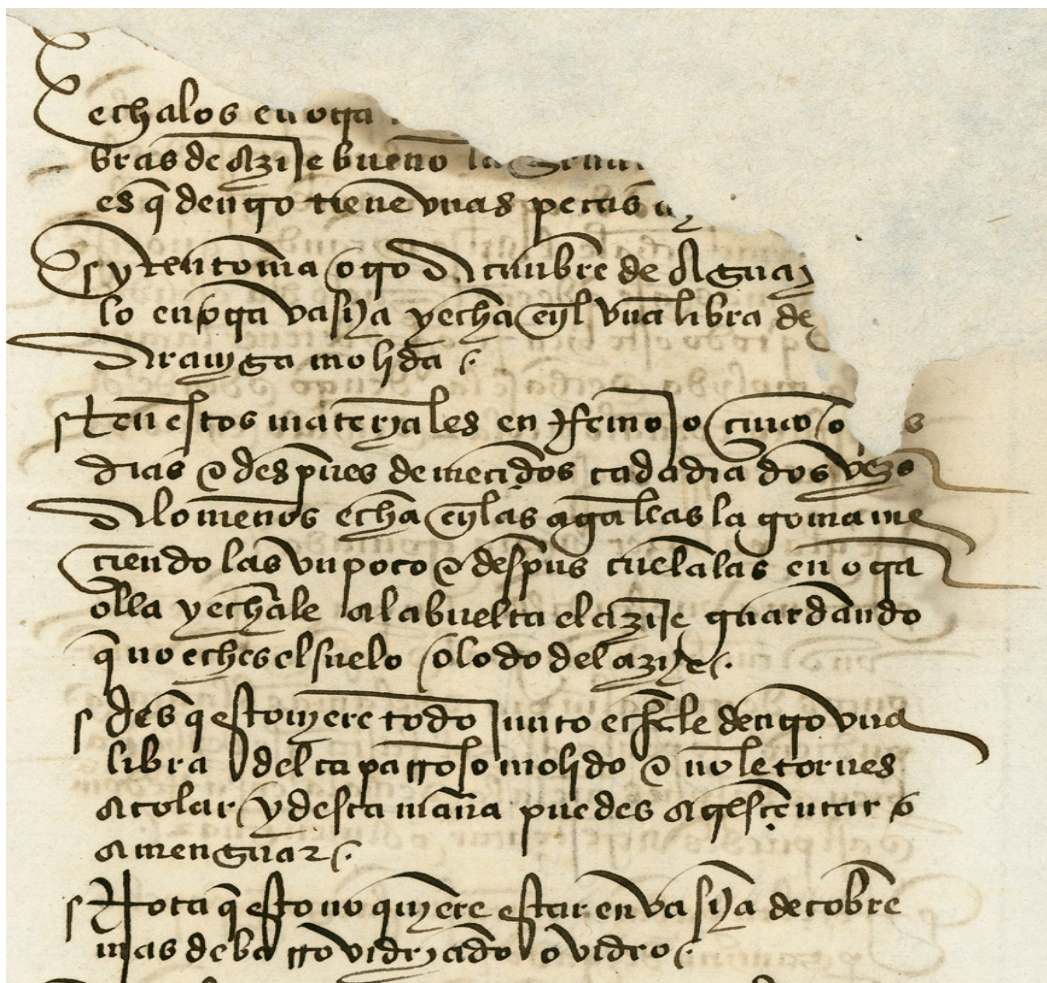 echalos en otra
bras de azije bueno la
es q̃ dentro tiene vnas pecas
yten toma otro açunbre de agua y
lo en otra vasija y echa en el vna libra de
arauiga molida
ten estos materiales en Remojo çinco o
dias & despues de meçidos cada dia dos vezes
alo menos echa en las agallas la goma me
çiendo las vn poco & despues cuelalas en otra
olla y echale ala buelta el azije guardando
q̃ no eches el suelo o lodo del azije
des q̃ estouyere todo junto echale dentro vna
libra del caparroso molido & no le tornes
a colar y desta man̄a puedes acresçentar o
amenguar
Nota q̃ esto no quyere estar en vasija de cobre
mas de barro vidryado o vidro